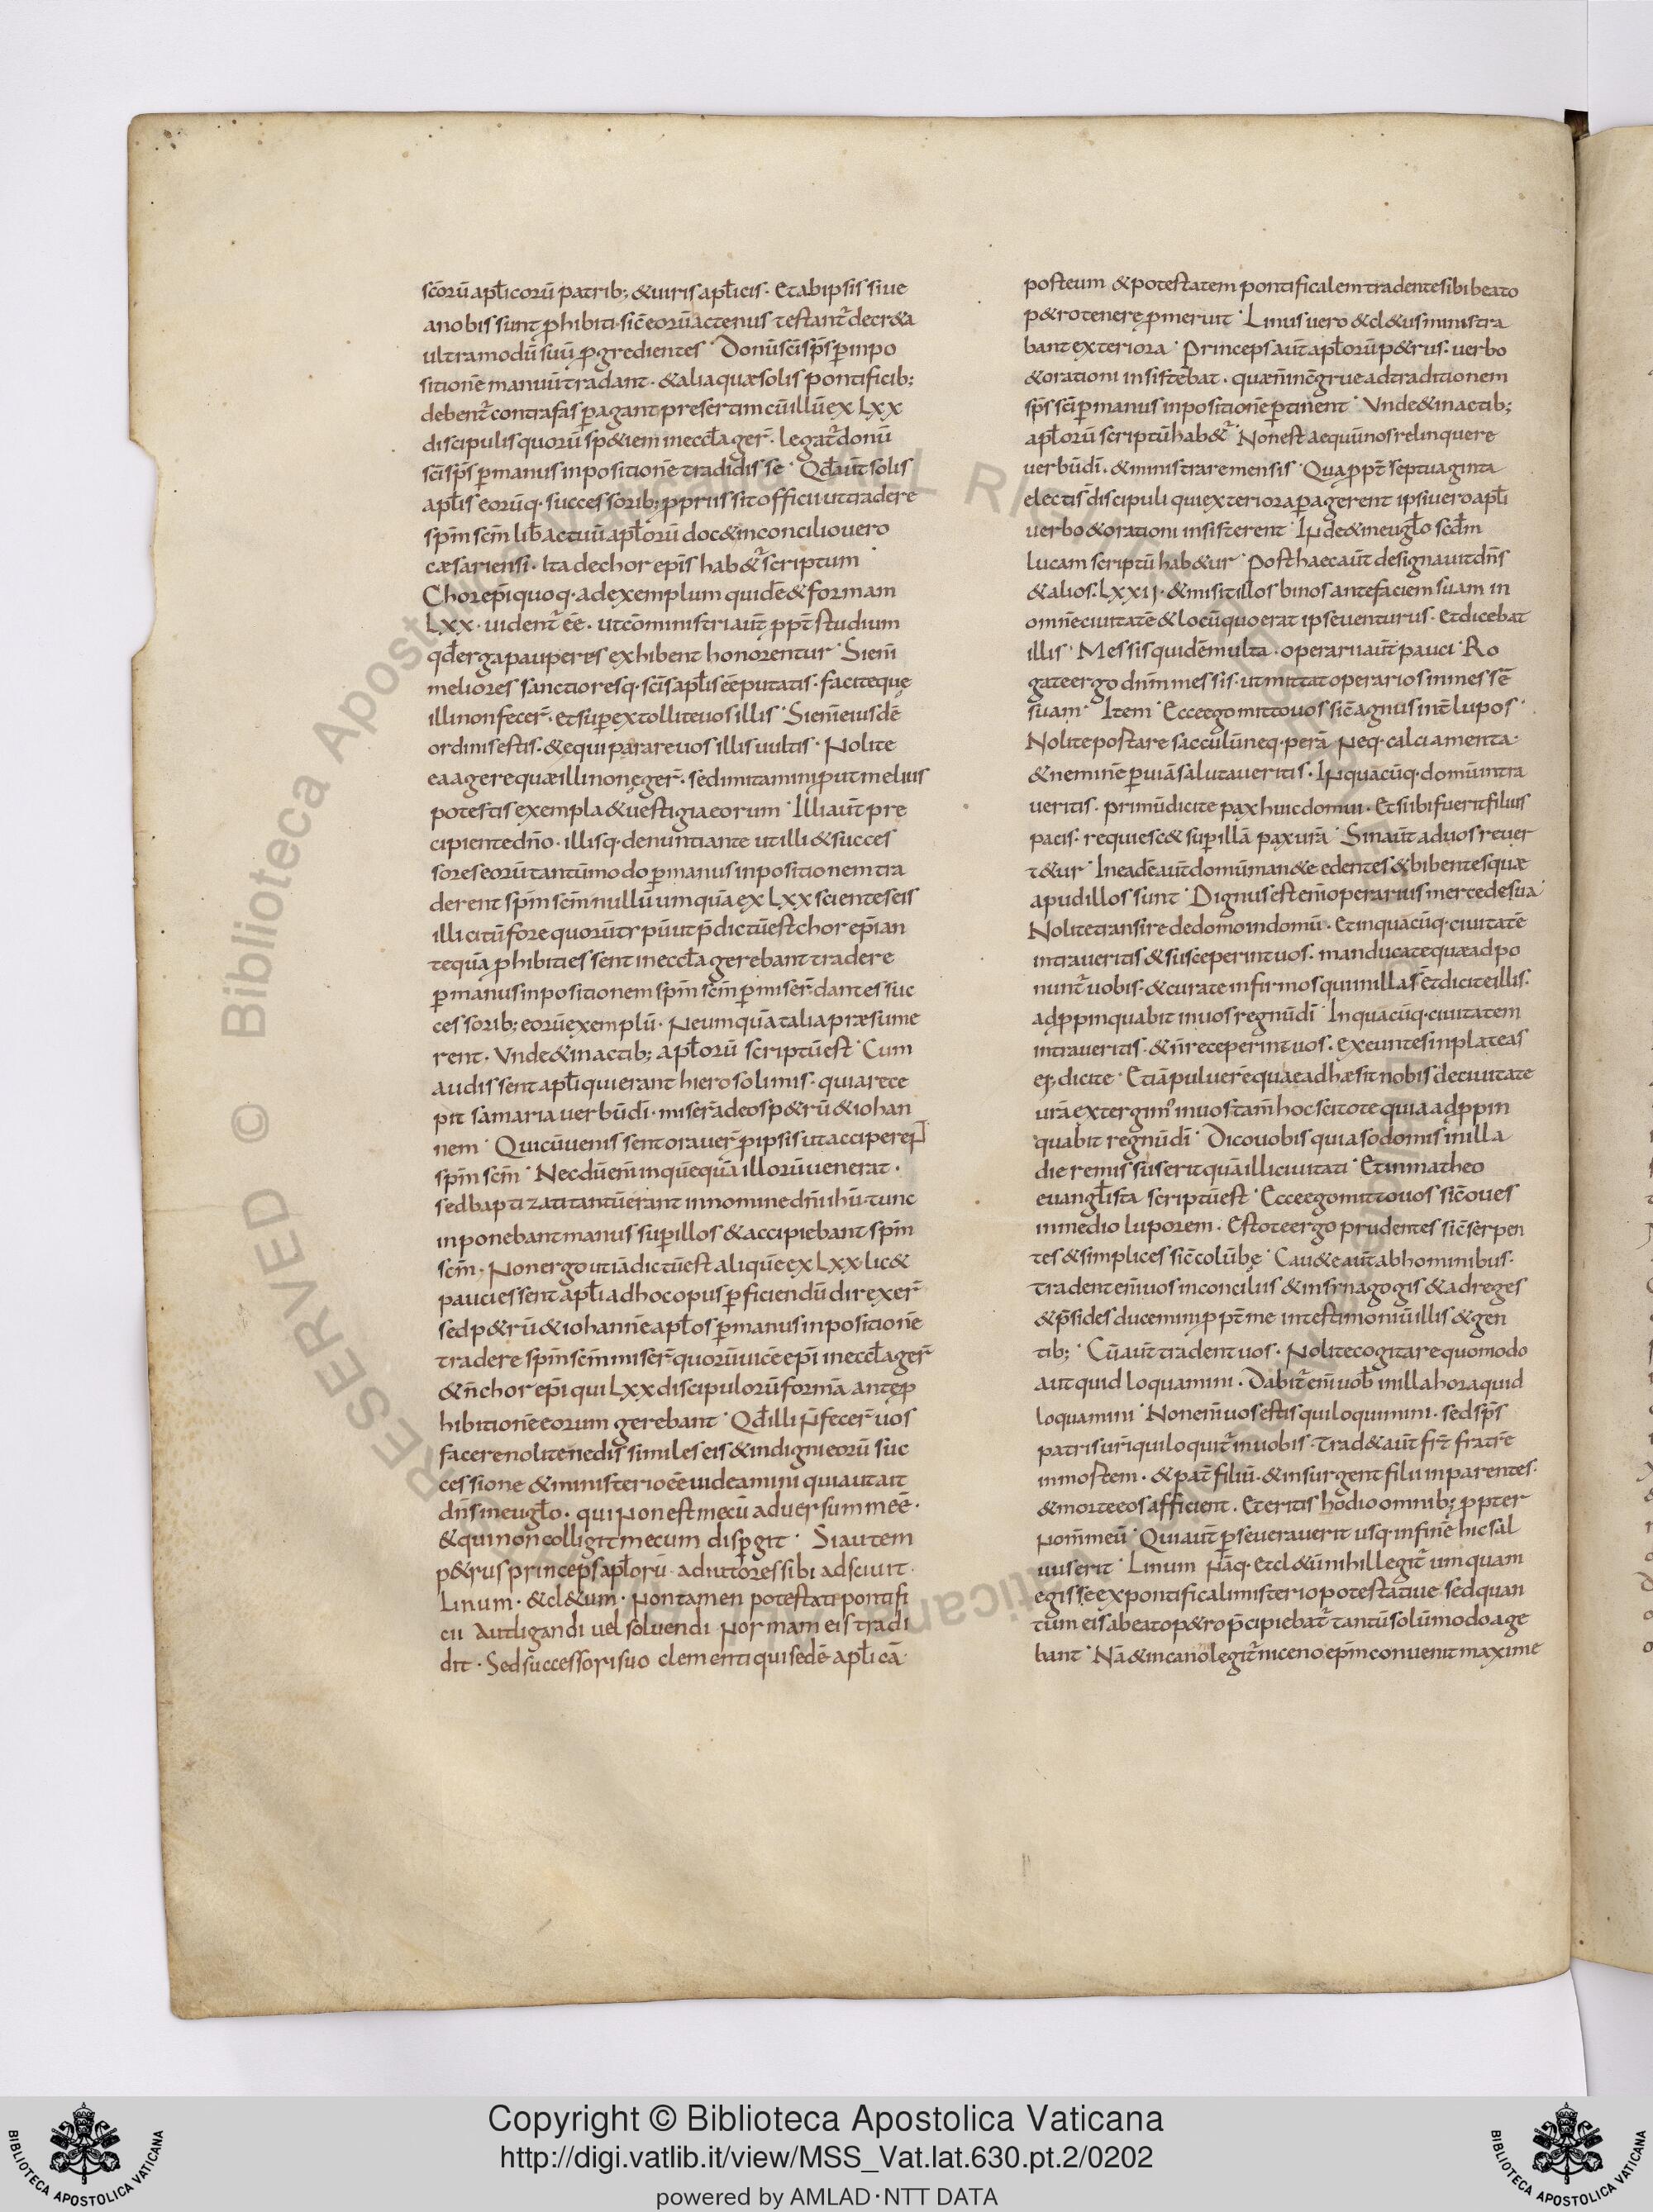 scōrū apłicorū patrib; & uiris apłicis · Et ab ipsis siue
a nobis sunt phibiti · sic̄ eorū actenus testant᷑ decr&a
ultra modū suū pgredientes · Donū sc̄i sp̄s p inpo
sitionē manuū tradant · & alia quae solis pontificib;
debent᷑ contra fas pagant presertim cū illū ex Lxx
discipulis quorū sp&iem in eccła ger̄ · legat᷑ donū
sc̄i sp̄s p manus inpositionē tradidisse · Qd̄ aūt solis
apłis eorūq· successorib; pprius sit officiū ut tradere
sp̄m sc̄m lib̄ actuū apłorū doc& in concilio uero
cæsariensi · Ita de chorep̄is hab&᷑ scriptum ·
Chorep̄i quoq· ad exemplum quidē & formam
Lxx · uident᷑ ēē · ut cōministri aūt ppt̄ studium
qd̄ erga pauperes exhibent honorentur · Si enī
meliores sanctioresq· sc̄is apłis ēē putatis · facite quę
illi non fecer̄ · et sup extollite uos illis · Si enī eiusdē
ordinis estis · & equiparare uos illis uultis · Nolite
ea agere quæ illi non eger̄ · sed imitamini put melius
potestis exempla & uestigia eorum · Illi aūt pre
cipiente dn̄o · illisq· denuntiante ut illi & succes
sores eorū tantūmodo p manus inpositionem tra
derent sp̄m sc̄m nullū umquā ex Lxx scientes eis
illicitū fore quorū tipū ut p̄dictū est chorep̄i an
tequā phibiti essent in eccła gerebant tradere
p manus inpositionem sp̄m sc̄m pmiser̄ dantes suc
cessorib; eorū exemplū · Ne umquā talia præsume
rent · Vnde & in actib; apłorū scriptū est · Cum
audissent apłi qui erant hierosolimis · quia rece
pit samaria uerbū dī · miser̄ ad eos p&rū & iohan
nem · Qui cū uenissent orauer̄ p ipsis ut acciperent
sp̄m sc̄m · Necdū enī in quēquā illorū uenerat ·
sed baptizati tantū erant in nomine dn̄i ihū · tunc
inponebant manus sup illos & accipiebant sp̄m
sc̄m · Non ergo utiā dictū est aliquē ex Lxx lic&
pauci essent apłi ad hoc opus pficiendū direxer̄
sed p&rū & iohannē apłos p manus inpositionē
tradere sp̄m sc̄m miser̄ quorū uicē ep̄i in eccła ger̄
& n̄ chorep̄i qui Lxx discipulorū formā ante p
hibitionē eorum gerebant · Qd̄ illi n̄ fecer̄ uos
facere nolite ne dissimiles eis & indigni eorū suc
cessione & ministerio ēē uideamini quia ut ait
dn̄s in eugłō · qui non est mecū aduersum me ē ·
& qui non colligit mecum dispgit · Si autem
p&rus princeps apłorū · adiutores sibi adsciuit ·
Linum · & cl&um · Non tamen potestatē pontifi
cii Aut ligandi uel soluendi Normam eis tradi
dit · Sed successori suo clementi qui sedē apłicā
post eum & potestatem pontificalem tradente sibi beato
p&ro tenere pmeruit · Linus uero & cl&us ministra
bant exteriora · Princeps aūt apłorū p&rus · uerbo
& orationi insistebat · quae n̄ incgrue ad traditionem
sp̄s sc̄i p manus inpositionē ptinent · Vnde & in actib;
apłorū scriptū hab&᷑ · Non est aequū nos relinquere
uerbū dī · & ministrare mensis · Quappt̄ septuaginta
electis discipuli qui exteriora pagerent ipsi uero apłi
uerbo & orationi insisterent · Inde & in eugłō scd̄m
lucam scriptū hab&ur · Post haec aūt designauit dn̄s
& alios · Lxxij · & misit illos binos ante faciem suam in
omnē ciuitatē & locū quo erat ipse uenturus · Et dicebat
illis · Messis quidē multa · operarii aūt pauci · Ro
gate ergo dn̄m messis · ut mittat operarios in messē
suam · Item · Ecce ego mitto uos sic̄ agnus int̄ lupos ·
Nolite postare sacculū neq· perā Neq· calciamenta ·
& neminē p uiā salutaueritis · In quacūq· domū intra
ueritis · primū dicite pax huic domui · Et si ibi fuerit filius
pacis · requiesc& sup illā pax ur̄a · Sin aūt ad uos reuer
t&ur · In eadē aūt domū man&e edentes & bibentes quæ
apud illos sunt · Dignus est enī operarius mercede sua
Nolite transire de domo in domū · Et in quacūq· ciuitatē
intraueritis & susceperint uos · manducate quae adpo
nunt᷑ uobis · & curate infirmos qui in illa s̄ et dicite illis ·
adppinquabit in uos regnū dī · In quacūq· ciuitatem
intraueritis · & n̄ receperint uos · exeuntes in plateas
ei; dicite · Etiā puluerē quae adhæsit nobis de ciuitate
ur̄a extergim᷒ in uos tam̄ hoc scitote quia adppin
quabit regnū dī · Dico uobis quia sodomis in illa
die remissius erit quā illi ciuitati · Et in matheo
euangłista scriptū est · Ecce ego mitto uos sic̄ oues
in medio luporem · Estote ergo prudentes sic̄ serpen
tes & simplices sic̄ colūbę · Cau&e aūt ab hominibus ·
tradent enī uos in conciliis & in sinagogis & ad reges
& p̄sides ducemini ppt̄ me in testimoniū illis & gen
tib; · Cū aūt tradent uos · Nolite cogitare quomodo
aut quid loquamini · Dabit᷑ enī uob̄ in illa hora quid
loquamini · Non enī uos estis qui loquimini · sed sp̄s
patris ur̄i qui loquit᷑ in uobis · Trad& aūt fr̄t fratrē
in mostem · & pat̄ filiū · & insurgent filii in parentes ·
& morte eos afficient · Et eritis hodio omnib; ppter
Nom̄ meū · Qui aūt pseuerauerit usq· in finē hic sal
uus erit · Linum Nāq· Et cl&ū nihil legit᷑ umquam
egisse ex pontificali misterio potestatiue sed quan
tum eis a beato p&ro p̄cipiebat᷑ tantū solūmodo age
bant · Nā & in cano legit᷑ niceno ep̄m conuenit maxime
Copyright © Biblioteca Apostolica Vaticana
http://digi.vatlib.it/view/MSS_Vat.lat.630.pt.2/0202
powered by AMLAD·NTT DATA